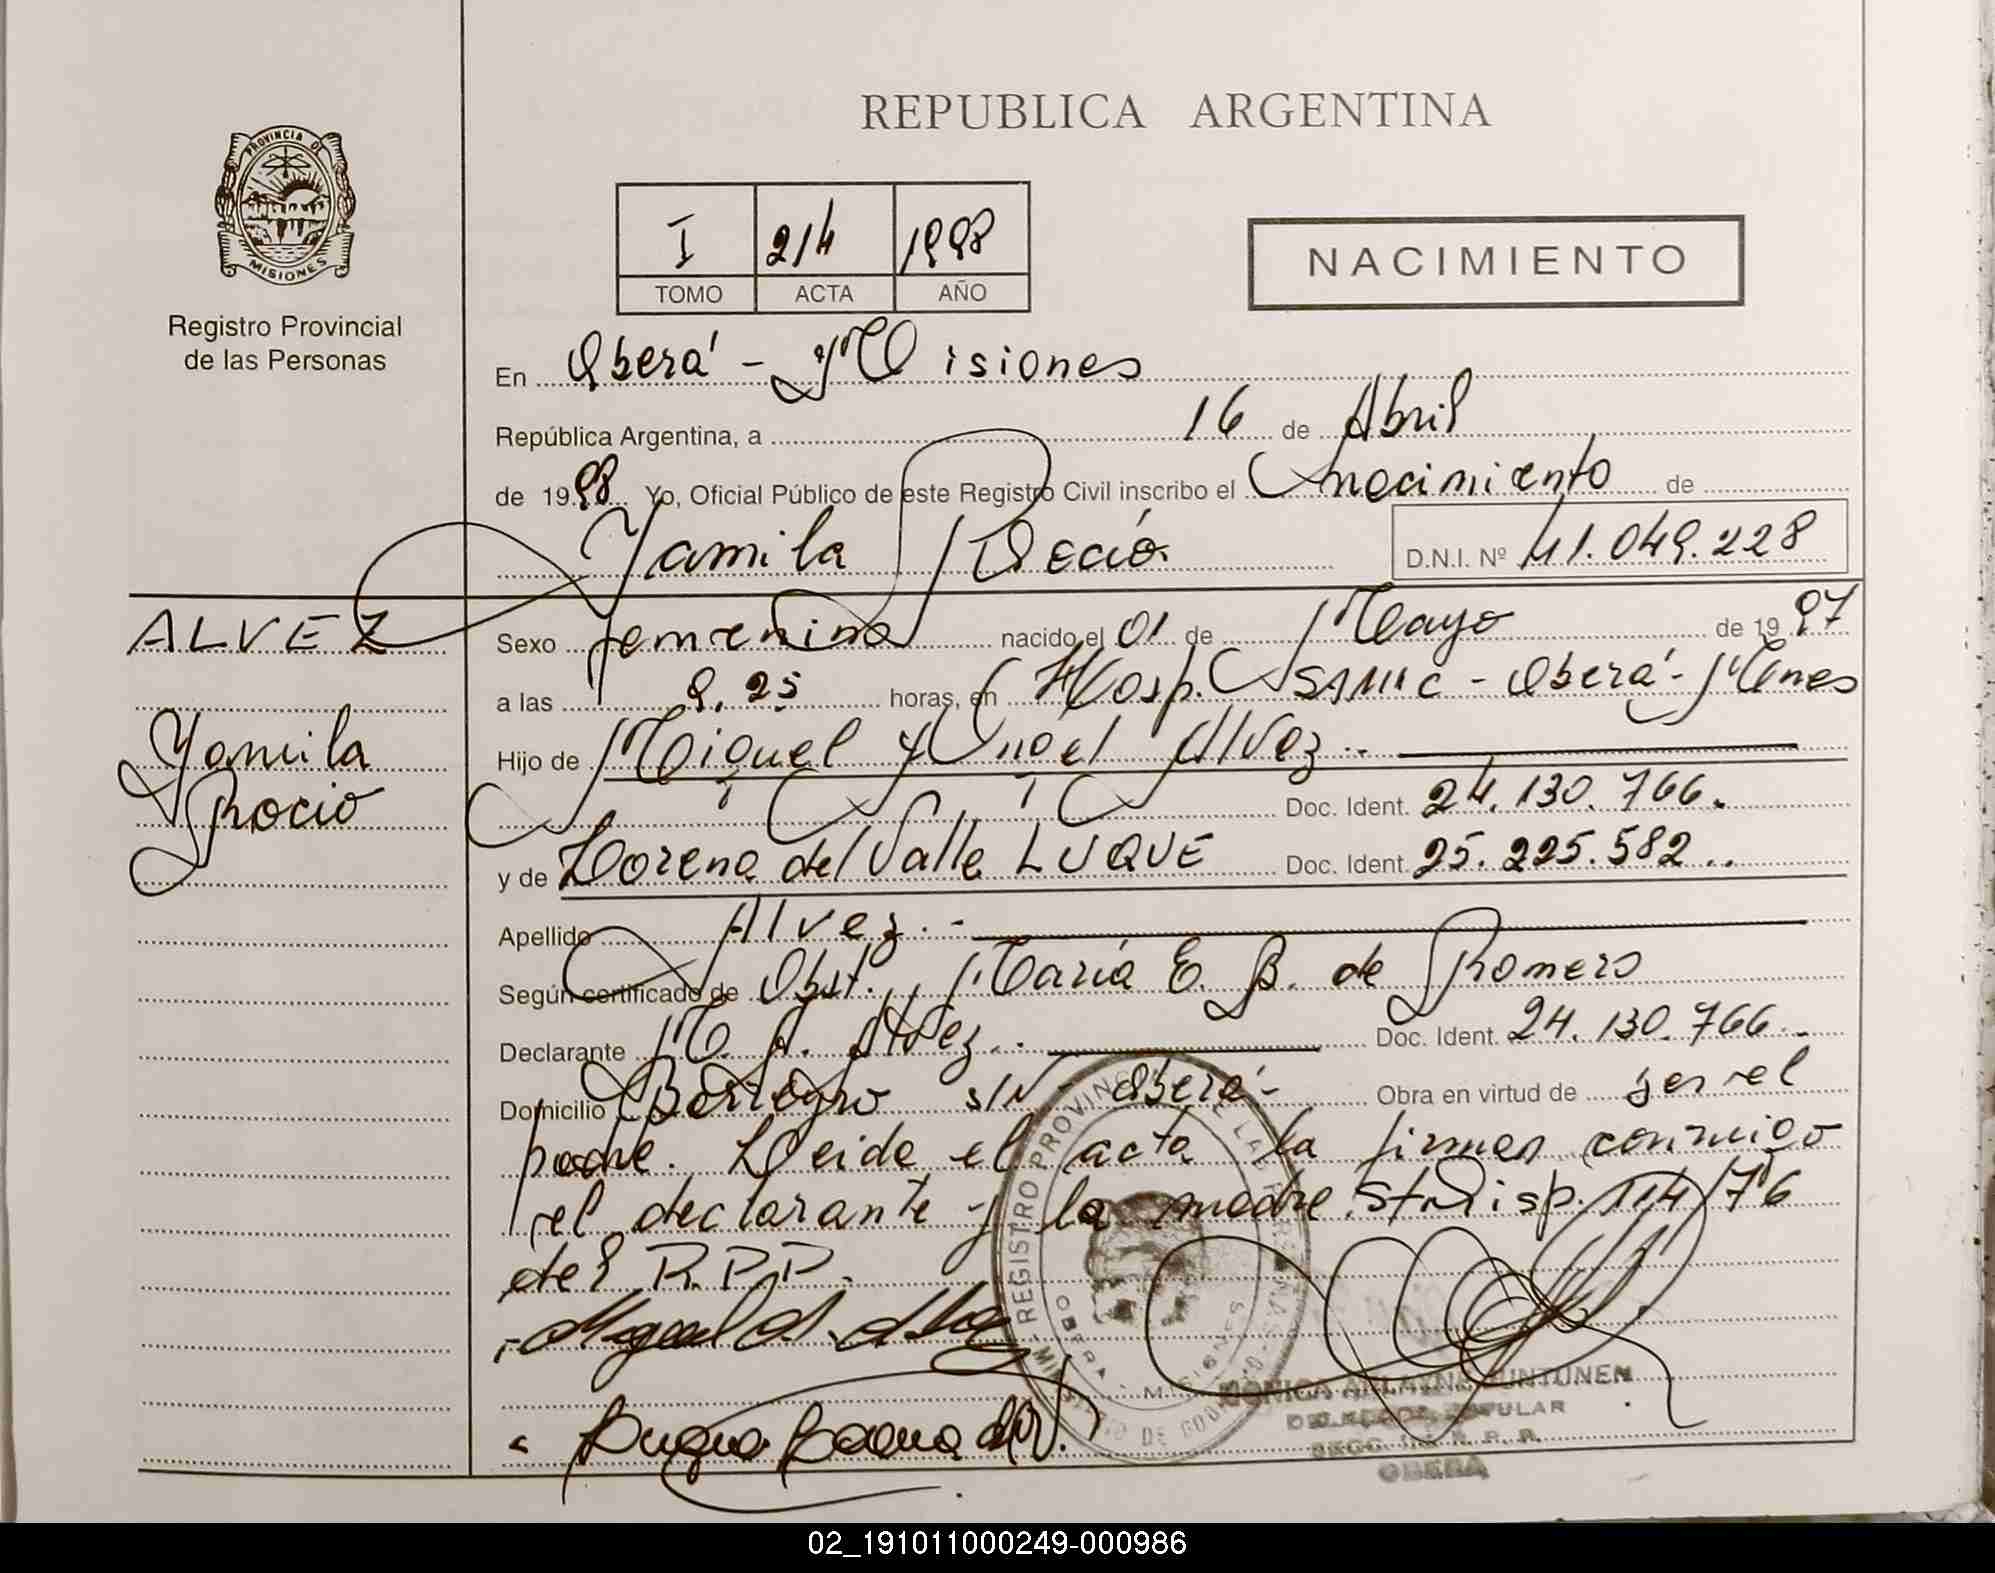 REPUBLICA ARGENTINA
PROVINCIA DE
MISIONES
Registro Provincial
de las Personas
I 214 1998
TOMO ACTA AÑO
NACIMIENTO
En Oberá - Misiones
República Argentina, a 16 de Abril
de 1998 Yo, Oficial Público de este Registro Civil inscribo el nacimiento de
Yamila Rocío
D.N.I. Nº 41.049.228
ALVEZ
Yamila
Rocio
Sexo femenino nacido el 01 de Mayo de 1997
a las 9.25 horas, en Hosp. SAMIC - Oberá - Mnes
Hijo de Miguel Angel Alvez.-
Doc. Ident. 24.130.766.
y de Lorena del Valle LUQUE Doc. Ident. 25.225.582..
Apellido Alvez.-
Según certificado de Obst. María E. B. de Romero
Declarante M. A. Alvez.. Doc. Ident. 24.130.766.-
Domicilio s/Nº Oberá- Obra en virtud de ser el
padre. Leida el acta la firman conmigo
el declarante y la madre. S/Disp. 114/76
del R.P.P.
REGISTRO PROVINCIAL DE LAS
OBERA - MISIONES
Miguel A. Alvez
MONICA PUNTUNEN
OBERA
02_191011000249-000986